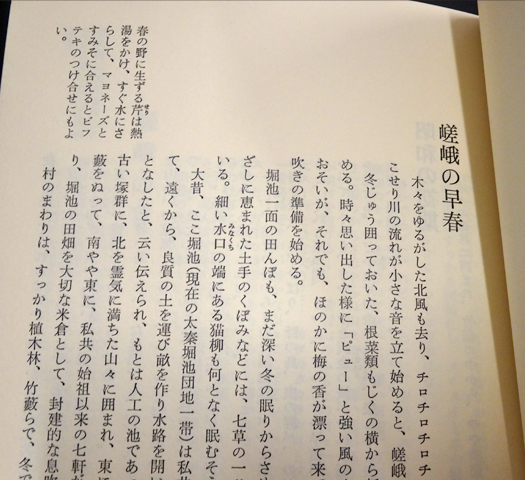 嵯峨の早春
木々をゆるがした北風も去り、チロチロチロチ
こせり川の流れが小さな音を立て始めると、嵯峨
冬じゅう囲っておいた、根菜類もじくの横から
める。時々思い出した様に「ピュー」と強い風の
おそいが、それでも、ほのかに梅の香が漂って来
吹きの準備を始める。
堀池一面の田んぼも、まだ深い冬の眠りからさ
ざしに恵まれた土手のくぼみなどには、七草の一
いる。細い水口の端にある猫柳も何となく眠むそ
みなくち
大昔、ここ堀池(現在の太秦堀池団地一帯)は私
て、遠くから、良質の土を運び畝を作り水路を開
となしたと、云い伝えられ、もとは人工の池であ
古い塚群に、北を霊気に満ちた山々に囲まれ、東
藪をぬって、南やや東に、私共の始祖以来の七軒
り、堀池の田畑を大切な米倉として、封建的な息
村のまわりは、すっかり植木林、竹藪らで、冬で
春の野に生ずる芹は熱
せり
湯をかけ、すぐ水にさ
らして、マヨネーズと
すみそに合えるとビフ
テキのつけ合せにもよ
い。